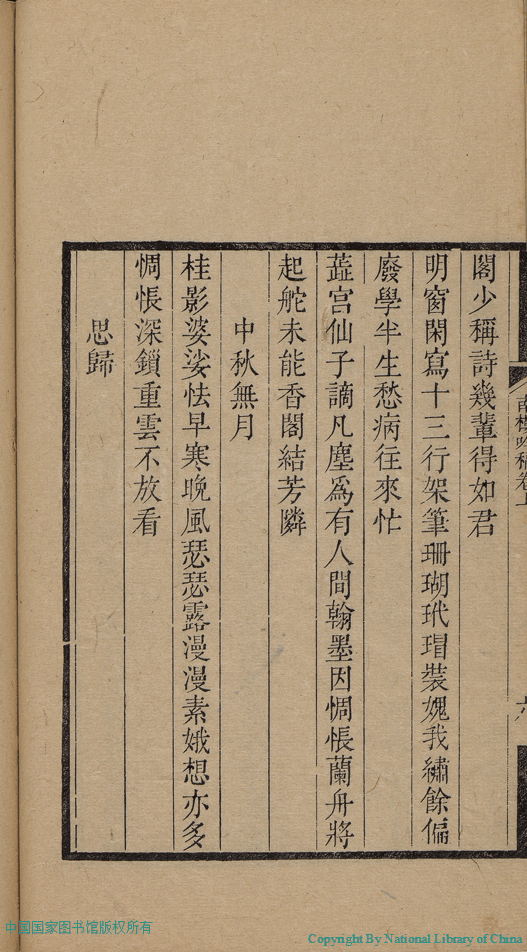 閣少稱詩幾輩得如君
明窗閑寫十三行架筆珊瑚玳瑁裝媿我繡餘偏
廢學半生愁病往來忙
蕋宮仙子謫凡塵爲有人間翰墨因惆悵蘭舟將
起舵未能香閣結芳隣
中秋無月
桂影婆娑怯早寒晚風瑟瑟露漫漫素娥想亦多
惆悵深鎖重雲不放看
思歸
中国国家图书馆版权所有
Copyright By National Library of China